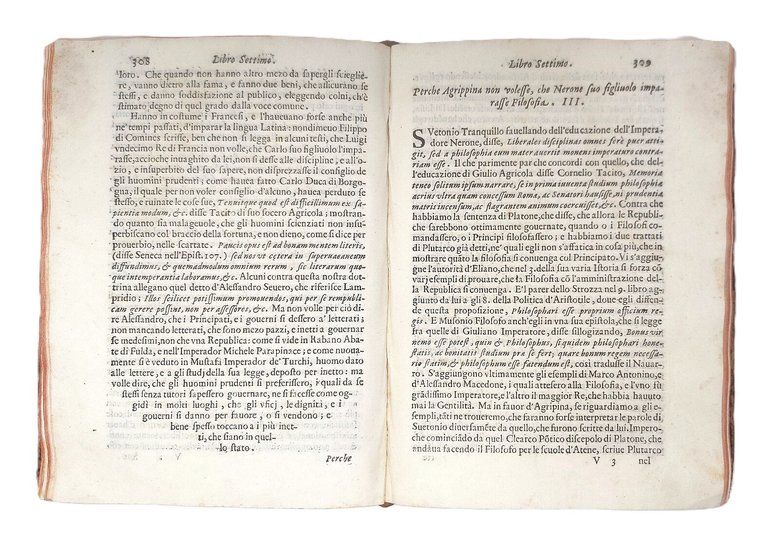 308 Libro Settimo.
loro. Che quando non hanno altro mezo da sapergli scieglie-
re, vanno dietro alla fama, e fanno due beni, che assicurano se
stessi, e danno sodisfazione al publico, eleggendo colui, ch'è
stimato degno di quel grado dalla voce comune.
Hanno in costume i Francesi, e l'haueuano forse anche più
ne' tempi passati, d'imparar la lingua Latina: nondimeuo Filippo
di Comines scrisse, ben che non si legga in alcuni testi, che Luigi
vndecimo Re di Francia non volle, che Carlo suo figliuolo l'impa-
rasse, accioche inuaghito da lei, non si desse alle discipline, e all'o-
zio, e insuperbito del suo sapere, non disprezzasse il consiglio de
gli huomini prudenti; come hauea fatto Carlo Duca di Borgo-
gna, il quale per non voler consiglio d'alcuno, hauea perduto se
stesso, e ruinate le cose sue, Tenuitque quod est difficillimum ex sa-
pientia modum, &c. disse Tacito di suo socero Agricola; mostran-
do quanto sia malageuole, che gli huomini scienziati non insu-
perbiscano col braccio della fortuna, e non dieno, come si dice per
prouerbio, nelle scartate. Paucis opus est ad bonam mentem literis,
(disse Seneca nell'Epist. 107.) sed nos vt cetera in superuacaneum
diffundimus, & quemadmodum omnium rerum, sic literarum quo-
que intemperantia laboramus, &c. Alcuni contra questa nostra dot-
trina allegano quel detto d'Alessandro Seuero, che riferisce Lam-
pridio; Illos scilicet potissimum promouendos, qui per se rempubli-
cam gerere possint, non per assessores, &c. Ma non volle per ciò di-
re Alessandro, che i Principati, e i gouerni si dessero a' letterati;
non mancando letterati, che sono mezo pazzi, e inetti a gouernar
se medesimi, non che vna Republica: come si vide in Rabano Aba-
te di Fulda, e nell'Imperador Michele Parapinace; e come nuoua-
mente si è veduto in Mustafà Imperador de' Turchi, huomo dato
alle lettere, e a gli studj della sua legge, deposto per inetto: ma
volle dire, che gli huomini prudenti si preferissero, i quali da se
stessi senza tutori sapessero gouernare, ne si facesse come og-
gidì in molti luoghi, che gli vficj, le dignità, e i
gouerni si danno per fauore, o si vendono; e
bene spesso toccano a i più inet-
ti, che siano in quel-
lo stato.
Perche
Libro Settimo. 309
Perche Agrippina non volesse, che Nerone suo figliuolo impa-
rasse Filosofia. III.
SVetonio Tranquillo fauellando dell'educazione dell'Impera-
dore Nerone, disse, Liberales disciplinas omnes ferè puer atti-
git, sed a philosophia eum mater auertit monens imperaturo contra-
riam esse. Il che parimente par che concordi con quello, che del-
l'educazione di Giulio Agricola disse Cornelio Tacito, Memoria
teneo solitum ipsum narrare, se in prima iuuenta studium philosophiæ
acrius vltra quam concessum Roma, ac Senatori hausisse, ni prudentia
matris incensum, ac flagrantem animum coercuisset, &c. Contra che
habbiamo la sentenza di Platone, che disse, che allora le Republi-
che sarebbono ottimamente gouernate, quando o i Filosofi co-
mandassero, o i Principi filosofassero; e habbiamo i due trattati
di Plutarco già detti, ne' quali egli non s'affatica in cosa più, che in
mostrare quāto la filosofia si conuenga col Principato. Vi s'aggiu-
gne l'autorità d'Eliano, che nel 3. della sua varia Istoria si forza cō
varj esempli di prouare, che la Filosofia cō l'amministrazione del-
la Republica si conuenga. E'l parer dello Strozza nel 9. libro ag-
giunto da lui a gli 8. della Politica d'Aristotile, doue egli diffen-
de questa proposizione, Philosophari esse proprium officium re-
gis. E Musonio Filosofo anch'egli in vna sua epistola, che si legge
fra quelle di Giuliano Imperatore, disse sillogizando, Bonus vir
nemo esse potest, quin & Philosophus, si quidem philosophari hone-
statis, ac bonitatis studium præ se fert; quare bonum regem necessa-
rio statim, & philosophum esse fatendum est, così tradusse il Nauar-
ro. S'aggiungono vltimamente gli esempli di Marco Antonino, e
d'Alessandro Macedone, i quali attesero alla Filosofia, e l'vno fù
grādissimo Imperatore, e l'altro il maggior Re, che habbia hauuto
mai la Gentilità. Ma in fauor d'Agrippina, se riguardiamo a gli es-
empli, tāti ne troueremo, che faranno forse interpretar le parole di
Suetonio diuersamēte da quello, che furono scritte da lui. Impero-
che cominciādo da quel Clearco Pōtico discepolo di Platone, che
andaua facendo il Filosofo per le scuole d'Atene, scriue Plutarco
V 3 nel